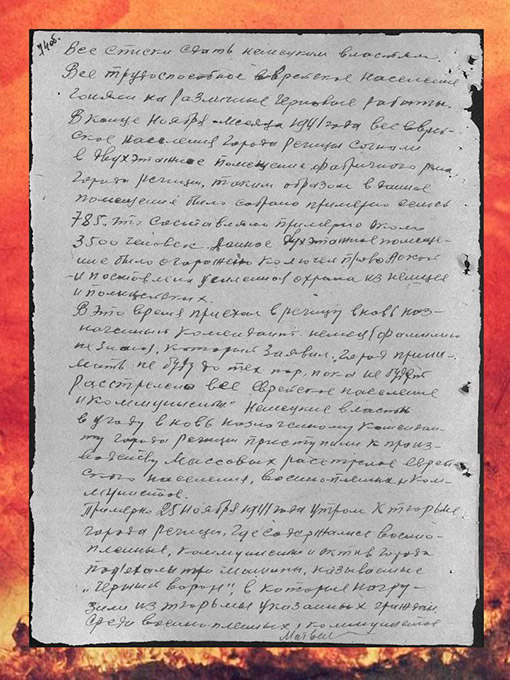 74об.
Все списки сдать немецким властям.
Все трудоспособное еврейское население
гоняли на различные черновые работы.
В конце ноября месяца 1941 года все еврей-
ское население города Речицы согнали
в двухэтажное помещение фабричного
города Речицы, таким образом в данное
помещение было собрано примерно семей
785. Это составляло примерно около
3500 человек. Данное двухэтажное помеще-
ние было огорожено колючей проволокой
и поставлена усиленная охрана из немцев
и полицейских.
В это время приехал в речицу вновь наз-
наченный комендант немец (фамилию
не знаю), который заявил, город прини-
мать не буду до тех пор, пока не будет
расстреляно все еврейское население
и коммунисты". Немецкие власти
в угоду вновь назначенному комендан-
ту города Речицы приступили к произ-
водству массовых расстрелов еврей-
ского населения, военнопленных и ком-
мунистов.
Примерно 25 ноября 1941 года утром к тюрьме
города речицы, где содержались военно-
пленные, коммунисты и актив города
подъехали три машины, называемые
"черный ворон", в которые погру-
зили из тюрьмы указанных граждан
Среди военнопленных, коммунистов